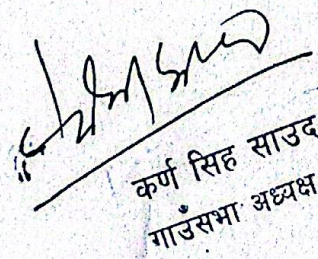 कर्ण सिह साउद
गाउँसभा अध्यक्ष